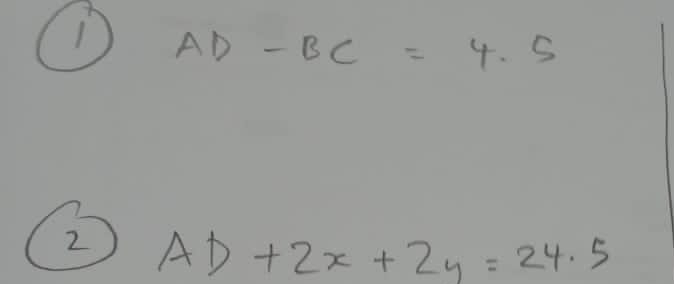 1 AD - BC = 4.5
2 AD + 2x + 2y = 24.5